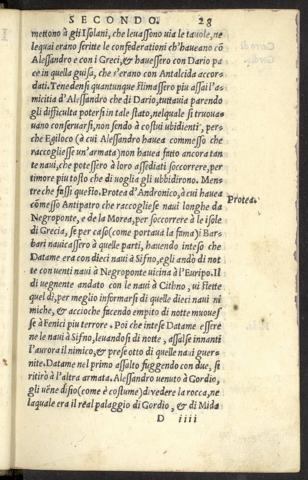 SECONDO. 28
mettono à gli Isolani, che leuassono uia le tauole, ne
le quai erano scritte le confederationi ch'haueano cō
Alessandro e con i Greci, & hauessero con Dario pa
ce in quella guisa, che s'erano con Antalcida accor-
dati. Tenedensi quantunque stimassero piu assai l'a-
micitia d'Alessandro che di Dario, tuttauia parendo
gli difficulta potersi in tale stato, nelquale si truoua-
uano conseruarsi, non sendo à costui ubidienti, per-
che Egiloco (à cui Alessandro hauea commesso che
raccogliesse un'armata) non hauea fatto ancora tan
te naui, che potessero à loro assediati soccorrere, per
timore piu tosto che di uoglia gli ubbidirono. Men
tre che fussi questo. Protea d'Andronico, à cui hauea
cōmesso Antipatro che raccogliesse naui longhe da
Negroponte, e de la Morea, per soccorrere à le isole
di Grecia, se per caso (come portaua la fama) i Bar-
bari nauicassero à quelle parti, hauendo inteso che
Datame era con dieci naui à Sifno, egli andò di not
te con uenti naui à Negroponte uicina à l'Euripo. Il
dì uegnente andato con le naui à Cithno, ui stette
quel dì, per meglio informarsi di quelle dieci naui ni
miche, & accioche facendo empito di notte mouef-
se à Fenici piu terrore. Poi che intese Datame essere
ne le naui à Sifno, leuandosi di notte, assalse innanti
l'aurora il nimico, & prese otto di quelle naui guer-
nite. Datame nel primo assalto fuggendo con due, si
ritirò à l'altra armata. Alessandro uenuto à Gordio,
gli uēne disio (come è costume) di vedere la rocca, ne
laquale era il real palaggio di Gordio, & di Mida
Protea.
D iiii